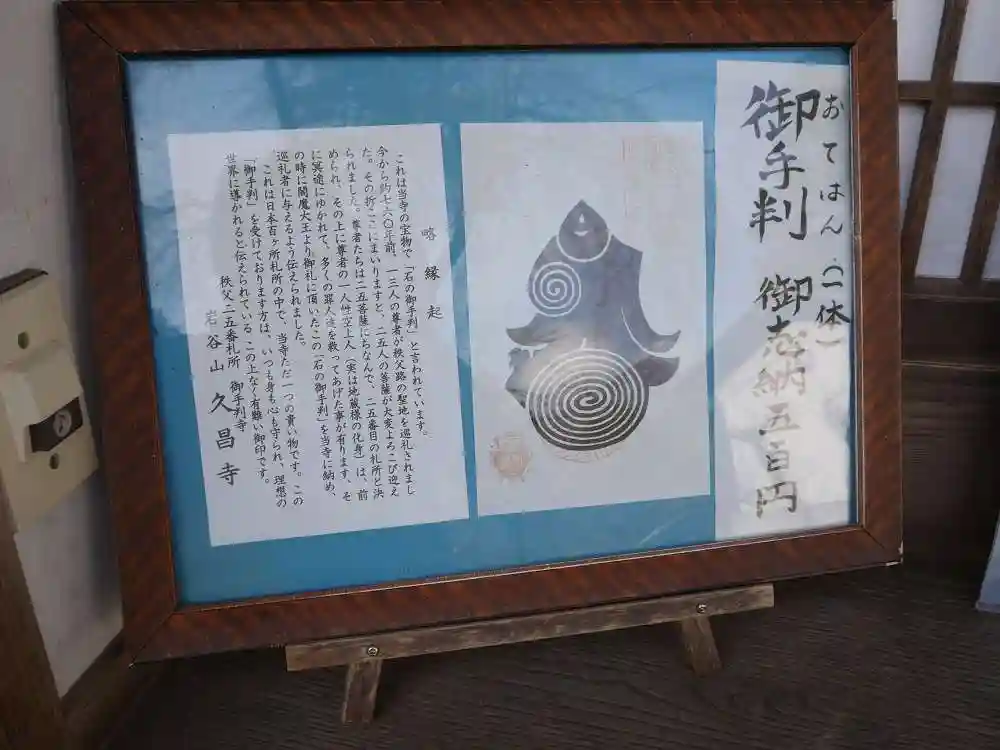 おてはん(一体)
御手判 御志納五百円
略縁起
これは当寺の宝物で「石の御手判」と言われています。
今から約七六〇年前、一三人の尊者が秩父路の聖地を巡礼されまし
た。その折ここにまいりますと、二五人の菩薩が大変よろこび迎え
られました。尊者たちは二五菩薩にちなんで、二五番目の札所と決
められ、その上に尊者の一人性空上人(実は地蔵様の化身)は、前
に冥途にゆかれて、多くの罪人達を救ってあげた事が有ります、そ
の時に閻魔大王より御礼に頂いたこの「石の御手判」を当寺に納め、
巡礼者に与えるよう伝えられました。
これは日本百ヶ所札所の中で、当寺ただ一つの貴い物です。この
「御手判」を受けております方は、いつも身も心も守られ、理想の
世界に導かれると伝えられている この上なく有難い御印です。
秩父二五番札所 御手判寺
岩谷山 久昌寺